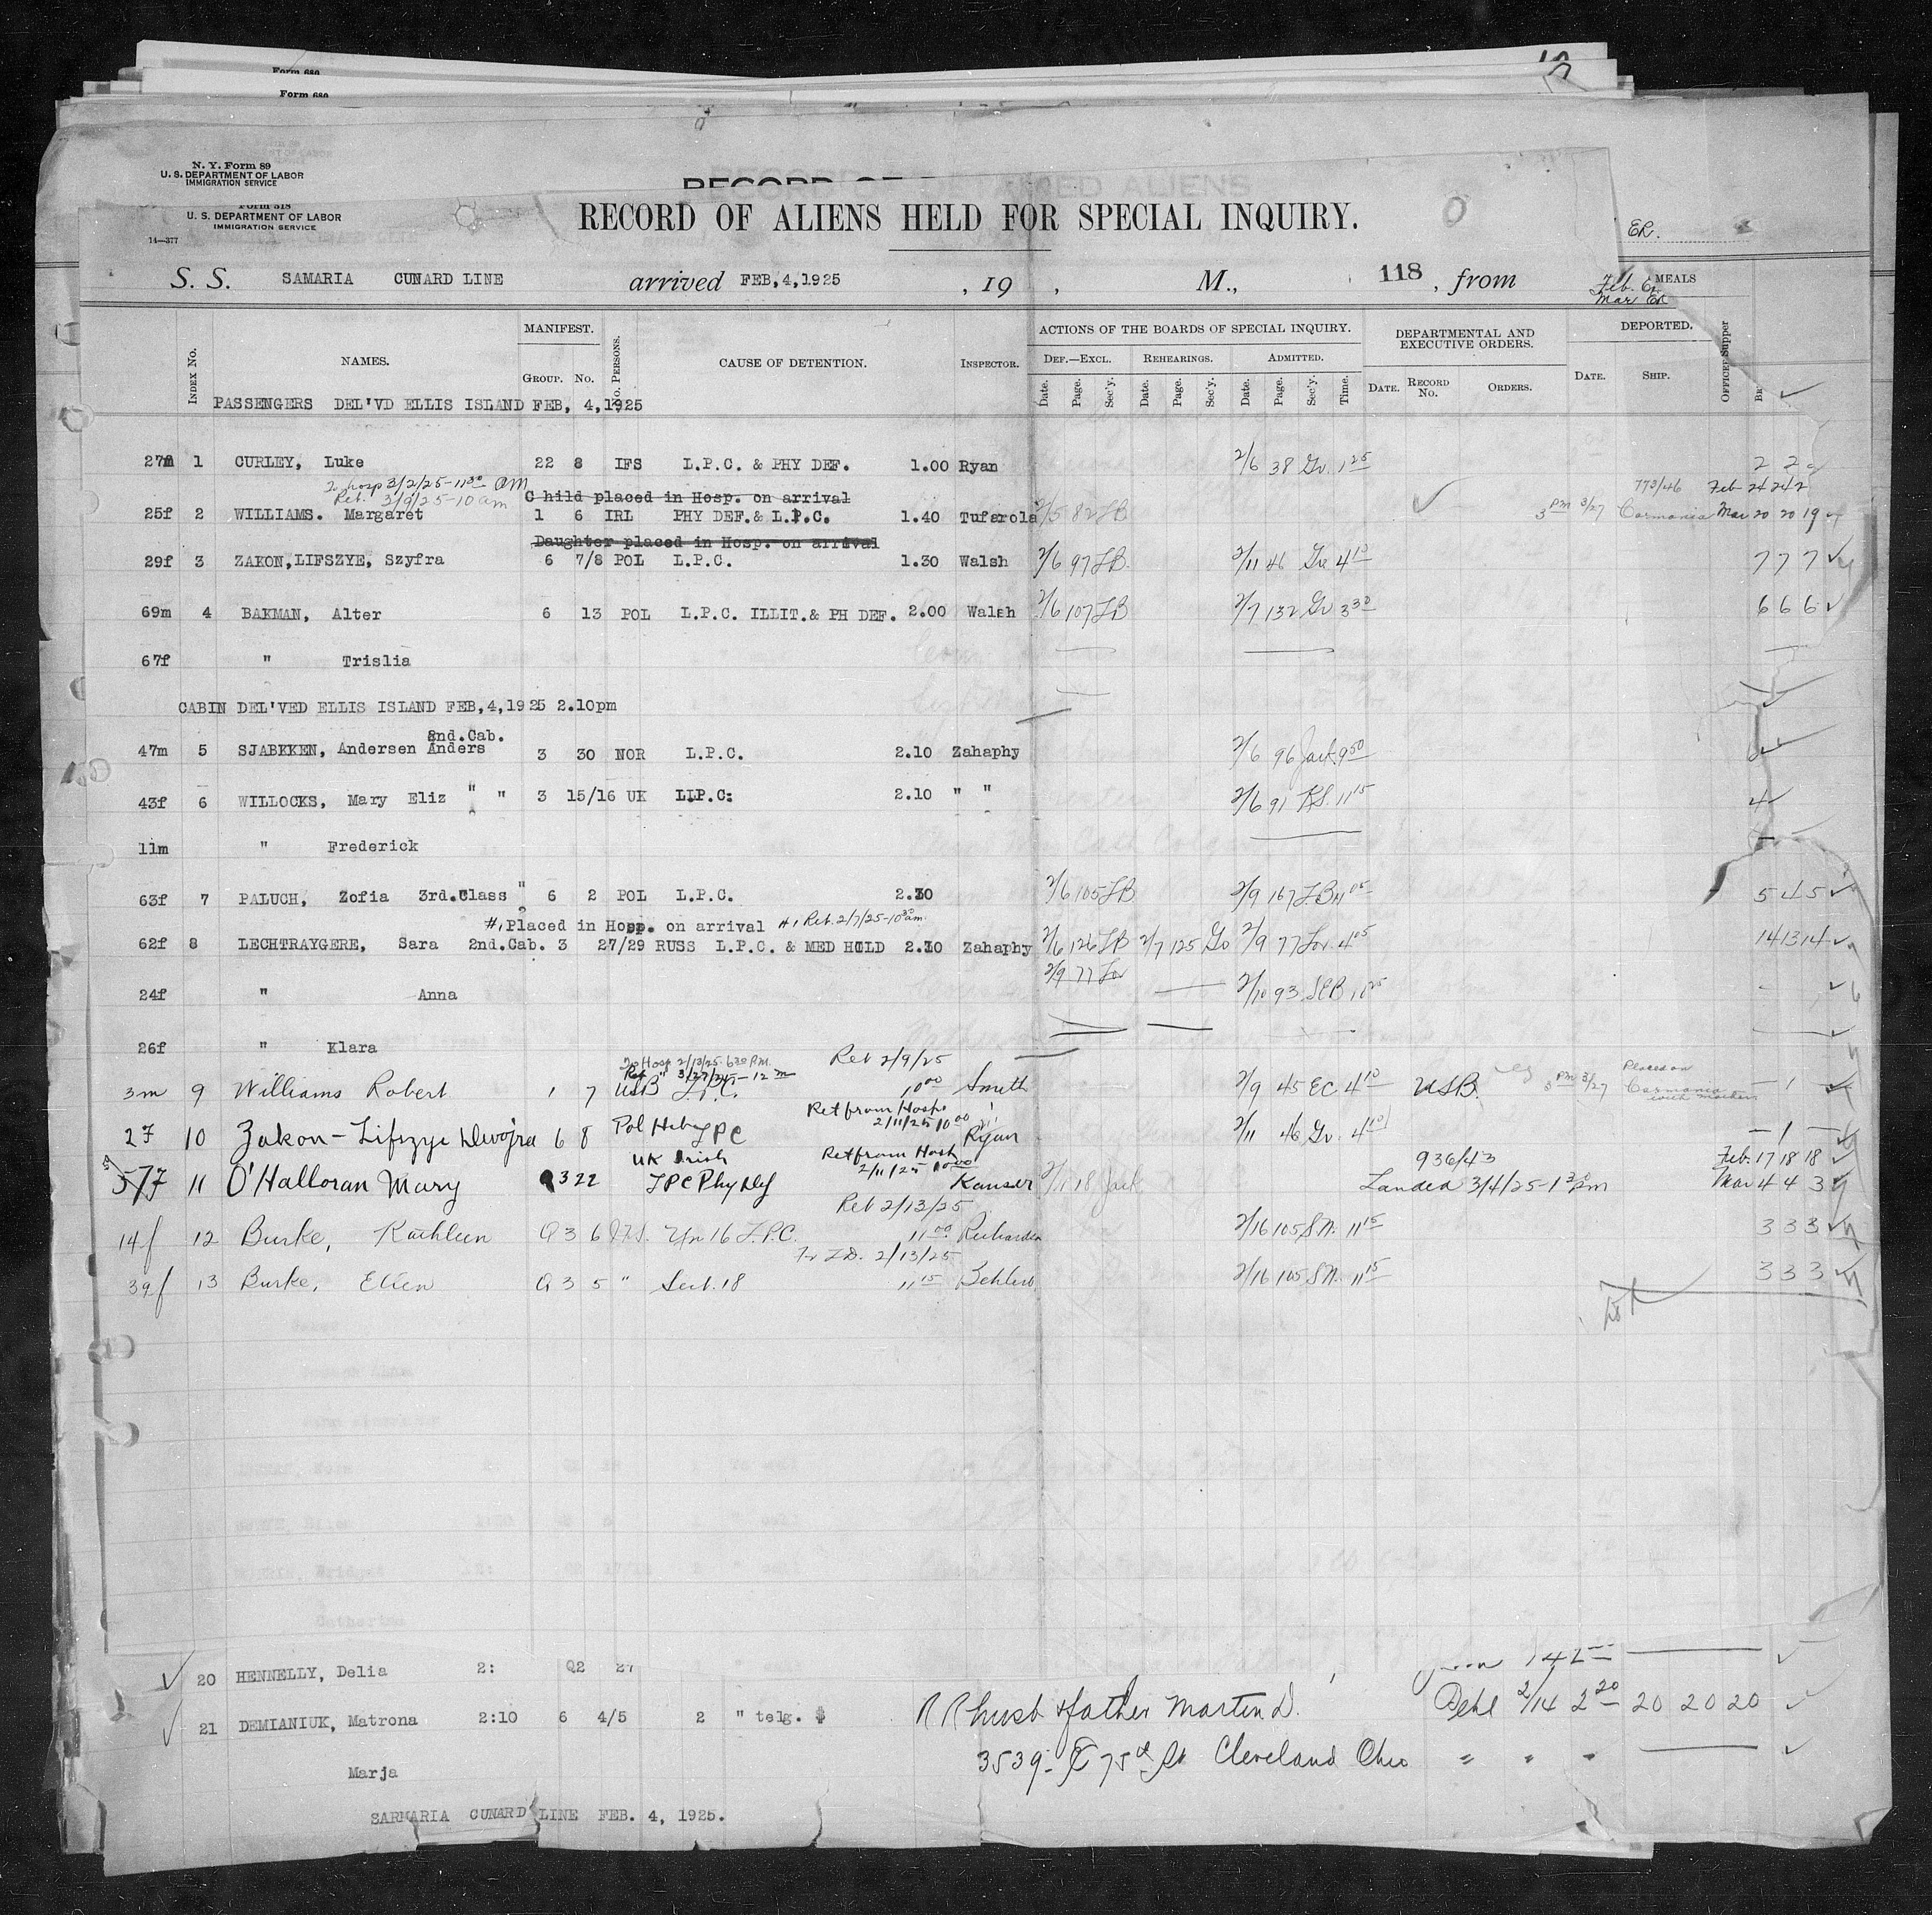 Form 680
Form 680
N. Y. Form 89
U. S. DEPARTMENT OF LABOR
IMMIGRATION SERVICE
Form 518
U. S. DEPARTMENT OF LABOR
IMMIGRATION SERVICE
14—377
RECORD OF ALIENS HELD FOR SPECIAL INQUIRY.
ER.
S. S. SAMARIA CUNARD LINE arrived FEB,4,1925 , 19 , M., 118 , from
Feb. ER MEALS
Mar ER
INDEX No. NAMES. MANIFEST. GROUP. No. No. PERSONS. CAUSE OF DETENTION. INSPECTOR.
ACTIONS OF THE BOARDS OF SPECIAL INQUIRY. DEPARTMENTAL AND EXECUTIVE ORDERS. DEPORTED.
DEF.—EXCL. REHEARINGS. ADMITTED.
Date. Page. Sec'y. Date. Page. Sec'y. Date. Page. Sec'y. Time. DATE. RECORD No. ORDERS. DATE. SHIP. Supper
PASSENGERS DEL'VD ELLIS ISLAND FEB, 4,1925
27m 1 CURLEY, Luke 22 8 IFS L.P.C. & PHY DEF. 1.00 Ryan 2/6 38 Gr. 1 25 2 2
To hosp 3/2/25-11 30 am
Ret. 3/9/25-10 am
Child placed in Hosp. on arrival
773/46 Feb 24 24 2
25f 2 WILLIAMS. Margaret 1 6 IRL PHY DEF.& L.P.C. 1.40 Tufarola 2/5 82 LB 3 PM 3/27 Carmania Mar 20 20 19
Daughter placed in Hosp. on arrival
29f 3 ZAKON,LIFSZYE, Szyfra 6 7/8 POL L.P.C. 1.30 Walsh 2/6 97 LB 2/11 46 Gr 4 10 7 7 7
69m 4 BAKMAN, Alter 6 13 POL L.P.C. ILLIT.& PH DEF. 2.00 Walsh 2/6 107 LB 2/7 132 Gr 3 30 6 6 6
67f " Trislia
CABIN DEL'VED ELLIS ISLAND FEB,4,1925 2.10pm
2nd.Cab.
47m 5 SJABKKEN, Andersen Anders 3 30 NOR L.P.C. 2.10 Zahaphy 2/6 96 Jack 9 50
43f 6 WILLOCKS, Mary Eliz " " 3 15/16 UK L.P.C. 2.10 " " 2/6 91 11 15
11m " Frederick
63f 7 PALUCH, Zofia 3rd.Class " 6 2 POL L.P.C. 2.30 2/6 105 LB 2/9 167 LB 5 4 5
#1 Placed in Hosp. on arrival #1 Ret. 2/7/25-10 30 am
62f 8 LECHTRAYGERE, Sara 2nd.Cab. 3 27/29 RUSS L.P.C. & MED HOLD 2.10 Zahaphy 2/6 126 LB 2/7 125 Go 2/9 77 Lov. 4 05 14 13 14
2/9 77 Lov
24f " Anna 2/10 93
26f " Klara
To Hosp 2/13/25 6 30 P.M.
Ret " 3/27/25-12 m Ret 2/9/25
3m 9 Williams Robert 1 7 USB L.P.C. 10 00 Smith 2/9 45 EC 4 10 USB. 3 PM 3/27 Placed on Carmania with mother — 1 —
Ret from Hosp 2/11/25 10 00
2f 10 Zakon-Lifszye Dwojra 6 8 Pol Heb LPC Ryan 2/11 46 Gr. 4 10 — 1 —
UK Irish Ret from Hosp 2/11/25 10 00 936/43 Feb. 17 18 18
57f 11 O'Halloran Mary Q 3 22 LPC Phy Def Kauser 18 Jack Landed 3/4/25-1 30 pm Mar 4 4 3
Ret 2/13/25
14f 12 Burke, Kathleen Q 3 6 IFS. Un 16 L.P.C. 11 00 Richardson 2/16 105 S.N. 11 15 3 3 3
2/13/25
39f 13 Burke, Ellen Q 3 5 " Sect. 18 11 15 2/16 105 S.N. 11 15 3 3 3
20 HENNELLY, Delia 2: Q2 27
21 DEMIANIUK, Matrona 2:10 6 4/5 2 " telg. $ RR husb & father Marten D. 2/14 2 20 20 20 20
Marja 3539 - E 75th St Cleveland Ohio " " "
SARMARIA CUNARD LINE FEB. 4, 1925.